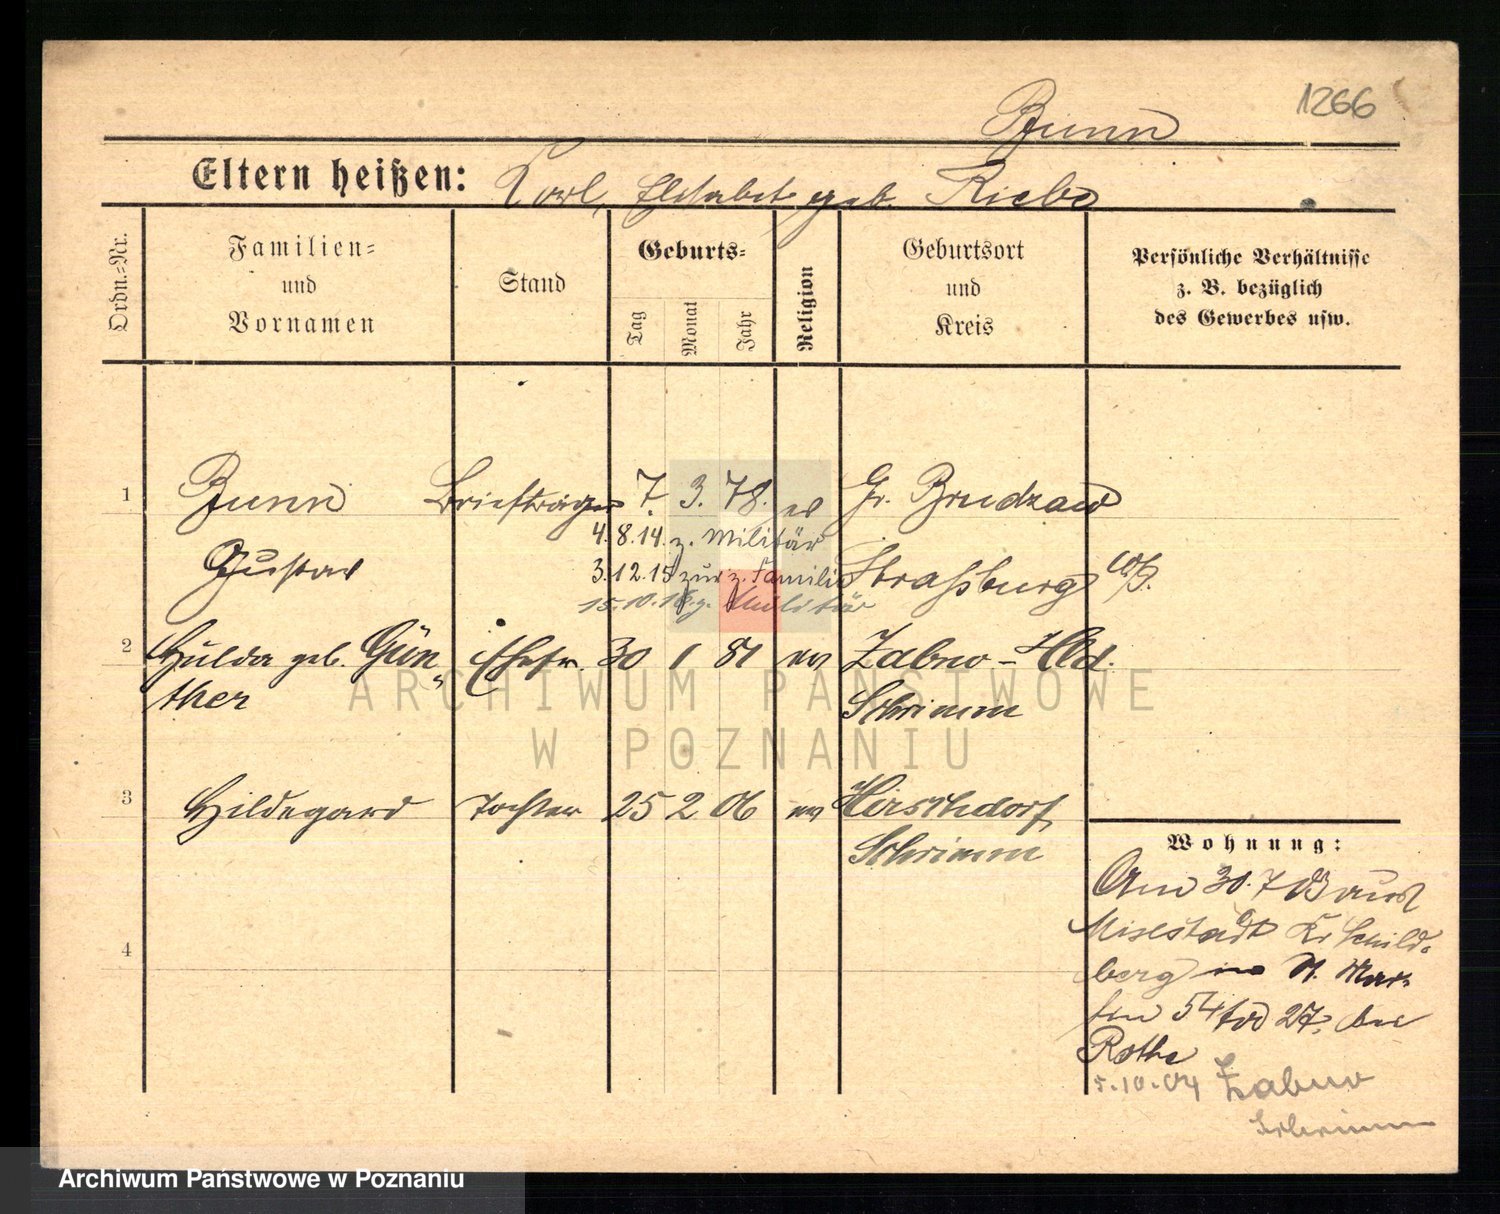 1266
Bunn
Eltern heißen: Karl, Elisabet geb. Riebe
Ordn.=Nr.
Familien=
und
Vornamen
Stand
Geburts=
Tag
Monat
Jahr
Religion
Geburtsort
und
Kreis
Persönliche Verhältnisse
z. B. bezüglich
des Gewerbes usw.
1 Bunn Briefträger 7. 3. 78. ev Gr. Brudzaw
4.8.14. z. Militär
Gustav Straßburg W/P.
3.12.15 zur z. Familie
15.10.16 z. Militär
2 Hulda geb. Gün„ Ehefr. 30 1 81 ev Zabno-Hld.
ther Schrimm
3 Hildegard Tochter 25 2 06 ev Hirschdorf
Schrimm
4
Wohnung:
Am 30.7 aus
Mixstadt Kr Schild=
berg in St. Mar=
tin 54 27. bei
Rothe
5.10.04 Zabno
Schrimm
ARCHIWUM PAŃSTWOWE
W POZNANIU
Archiwum Państwowe w Poznaniu